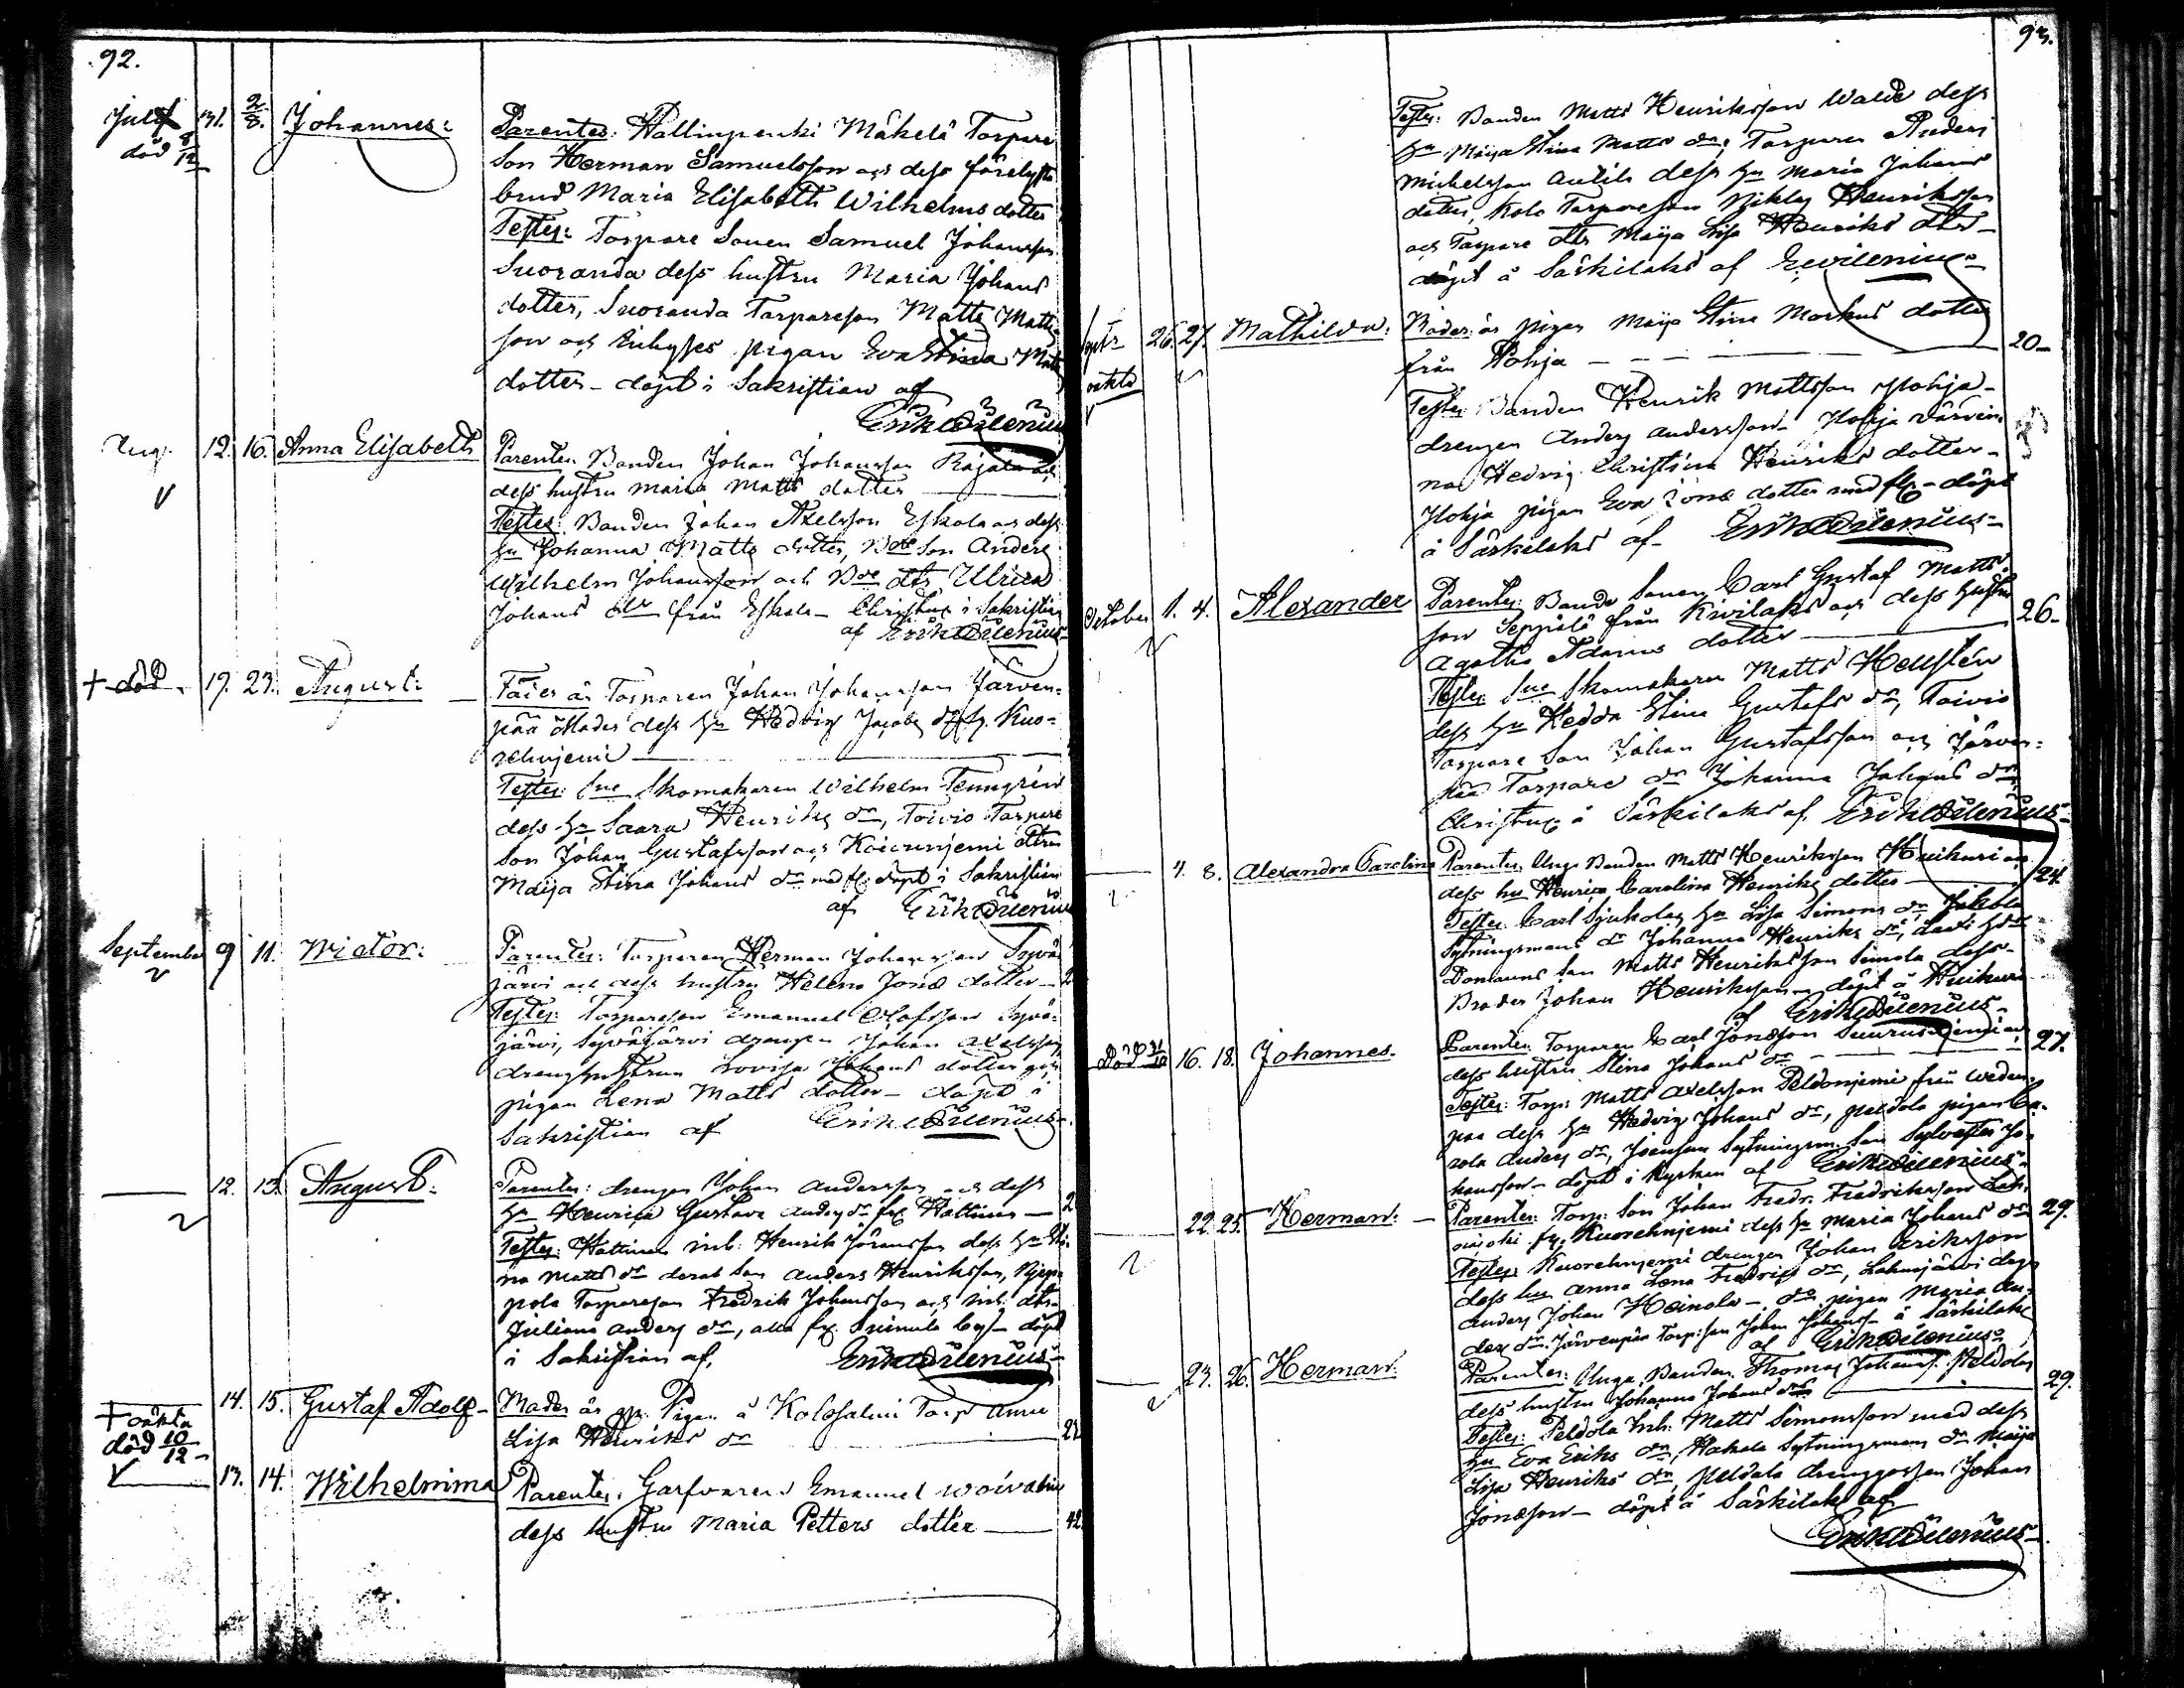 92.
Juli 31. 2/8. Johannes:
död 8/12
Parentes: Hallinpenki Mäkelä Torpare
Son Herman Samuelsson och dess förelyste
brud Maria Elisabeth Wilhelms dotter
Testes: Torpare Sonen Samuel Johansson
Suoranda dess hustru Maria Johans
dotter, Suoranda Torpareson Matts Matts
son och Inhyses pigan Eva Stina Matts
dotter - döpt i Sakristian af
Erik Dilenius
Aug. 12. 16. Anna Elisabeth
Parentes: Bonden Johan Johansson Rajala och
dess hustru Maria Matts dotter
Testes: Bonden Johan Axelsson Eskola och dess
hu Johanna Matts dotter, Bde Son Anders
Wilhelm Johansson och Bde dtr Ulrica
Johans dr från Eskola - Christnt i Sakristian
af Erik Dilenius
+ död. 19. 23. August:
Fader är Torparen Johan Johansson Järven-
pää Moder dess hu Hedvig Jacobs dr fr. Kuo-
rehniemi
Testes: Sne Skomakaren Wilhelm Tenngrén
dess hu Saara Henriks dr, Toivio Torpare
Son Johan Gustafsson och Koivuniemi
Maija Stina Johans dr med fl. döpt i Sakristian
af Erik Dilenius
September 9 11. Wictor:
Parentes: Torparen Herman Johansson Syvä-
järvi och dess hustru Helena Jonæ dotter
Testes: Torpareson Emanuel Olofsson Syvä-
järvi, Syväjärvi drengen Johan Axelsson,
drenghustrun Lovisa Johans dotter och
pigan Lena Matts dotter - döpt i
Sakristian af Erik Dilenius
12. 13. August:
Parentes: drengen Johan Andersson och dess
hu Henrica Gustava Anders dr fr. Hattinen
Testes: Hattinen inh: Henrik Göransson dess hu Sti-
na Matts dr deras Son Anders Henriksson,
pola Torpareson Fredrik Johansson och inh. dtr
Juliana Anders dr, alla fr. by - döpt
i Sakristian af, Erik Dilenius
14. 15. Gustaf Adolf -
Moder är Pigan å Kolosalmi Torp Anna
Lisa Henriks dr 22
+ oäkta
död 10/12 -
13. 14. Wilhelmina
Parentes: Garfvaren Emanuel
dess hustru Maria Petters dotter 42.
93.
Testes: Bonden Matts Henriksson Wale dess
hu Maija Stina Matts dr; Torparen Anders
Michelsson Antila dess hu Maria Johans
dotter, Kolo Torpareson Niklas Henriksson
och Torpare dtr Maija Lisa Henriks dtr -
döpt å Särkilaks af E. Dilenius
Septr 26. 27. Mathilda:
oäkta
Moder: är pigan Maija Stina Markus dotter
från Pohja 20-
Testes: Bonden Henrik Mattsson Pohja -
drengen Anders Andersson Pohja värdin-
nan Hedvig Christina Henriks dotter -
Pohja pigan Eva Jonæ dotter med fl. - döpt
å Särkilaks af - Erik Dilenius -
October 1. 4. Alexander
Parentes: Bonde Sonen Carl Gustaf Matts-
son Seppälä från Kivilaks och dess hustru
Agatha Adams dotter 26-
Testes: Sne Skomakaren Matts Hensten
dess hu Hedda Stina Gustafs dr, Toivio
Torpare Son Johan Gustafsson och Järven-
pää Torpare dr Johanna Johans dr
Christnt å Särkilaks af. Erik Dilenius
4. 8. Alexandra Carolina
Parentes: Unga Bonden Matts Henriksson Huikuri och
dess hu Henrica Carolina Henriks dotter 24.
Testes: Carl Sjukolas hu Lisa Simons dr, Jokela
Sytningsmans dr Johanna Henriks dr,
Domarens Son Matts Henriksson Simola dess
Broder Johan Henriksson - döpt å Huikuri
af Erik Dilenius
död 31/10 16. 18. Johannes.
Parentes: Torparen Carl Jonæsson Suuruniemi och
dess hustru Stina Johans dr 27.
Testes: Torp: Matts Axelsson Peldoniemi från Weden-
pää dess hu Hedvig Johans dr, Peldola pigan Ca-
rola Anders dr, Joensuu Sytningsm. Son Sylvester Jo-
hansson - döpt i Kyrkan af Erik Dilenius
22. 25. Herman: -
Parentes: Torp: Son Johan Fredr. Fredriksson Lah-
najoki fr. Kuorehniemi dess hu Maria Johans dr 29.
Testes: Kuorehniemi drengen Johan Eriksson
dess hu Anna Lena Fredriks dr, Lahnajärvi
Anders Johan Heinola - dr pigan Maria An-
ders dr. Järvenpää Torp:son Johan Johans - å Särkilaks
af Erik Dilenius
23. 26. Herman:
Parentes: Unga Bonden Thomas Johans: Peldola
dess hustru Johanna Johans dr 29.
Testes: Peldola Inh: Matts Simonsson med dess
hu Eva Eriks dr, Hakala Sytningsmans dr Maija
Lisa Henriks dr, Peldola drenggossen Johan
Jonæson - döpt å Särkilaks af
Erik Dilenius -